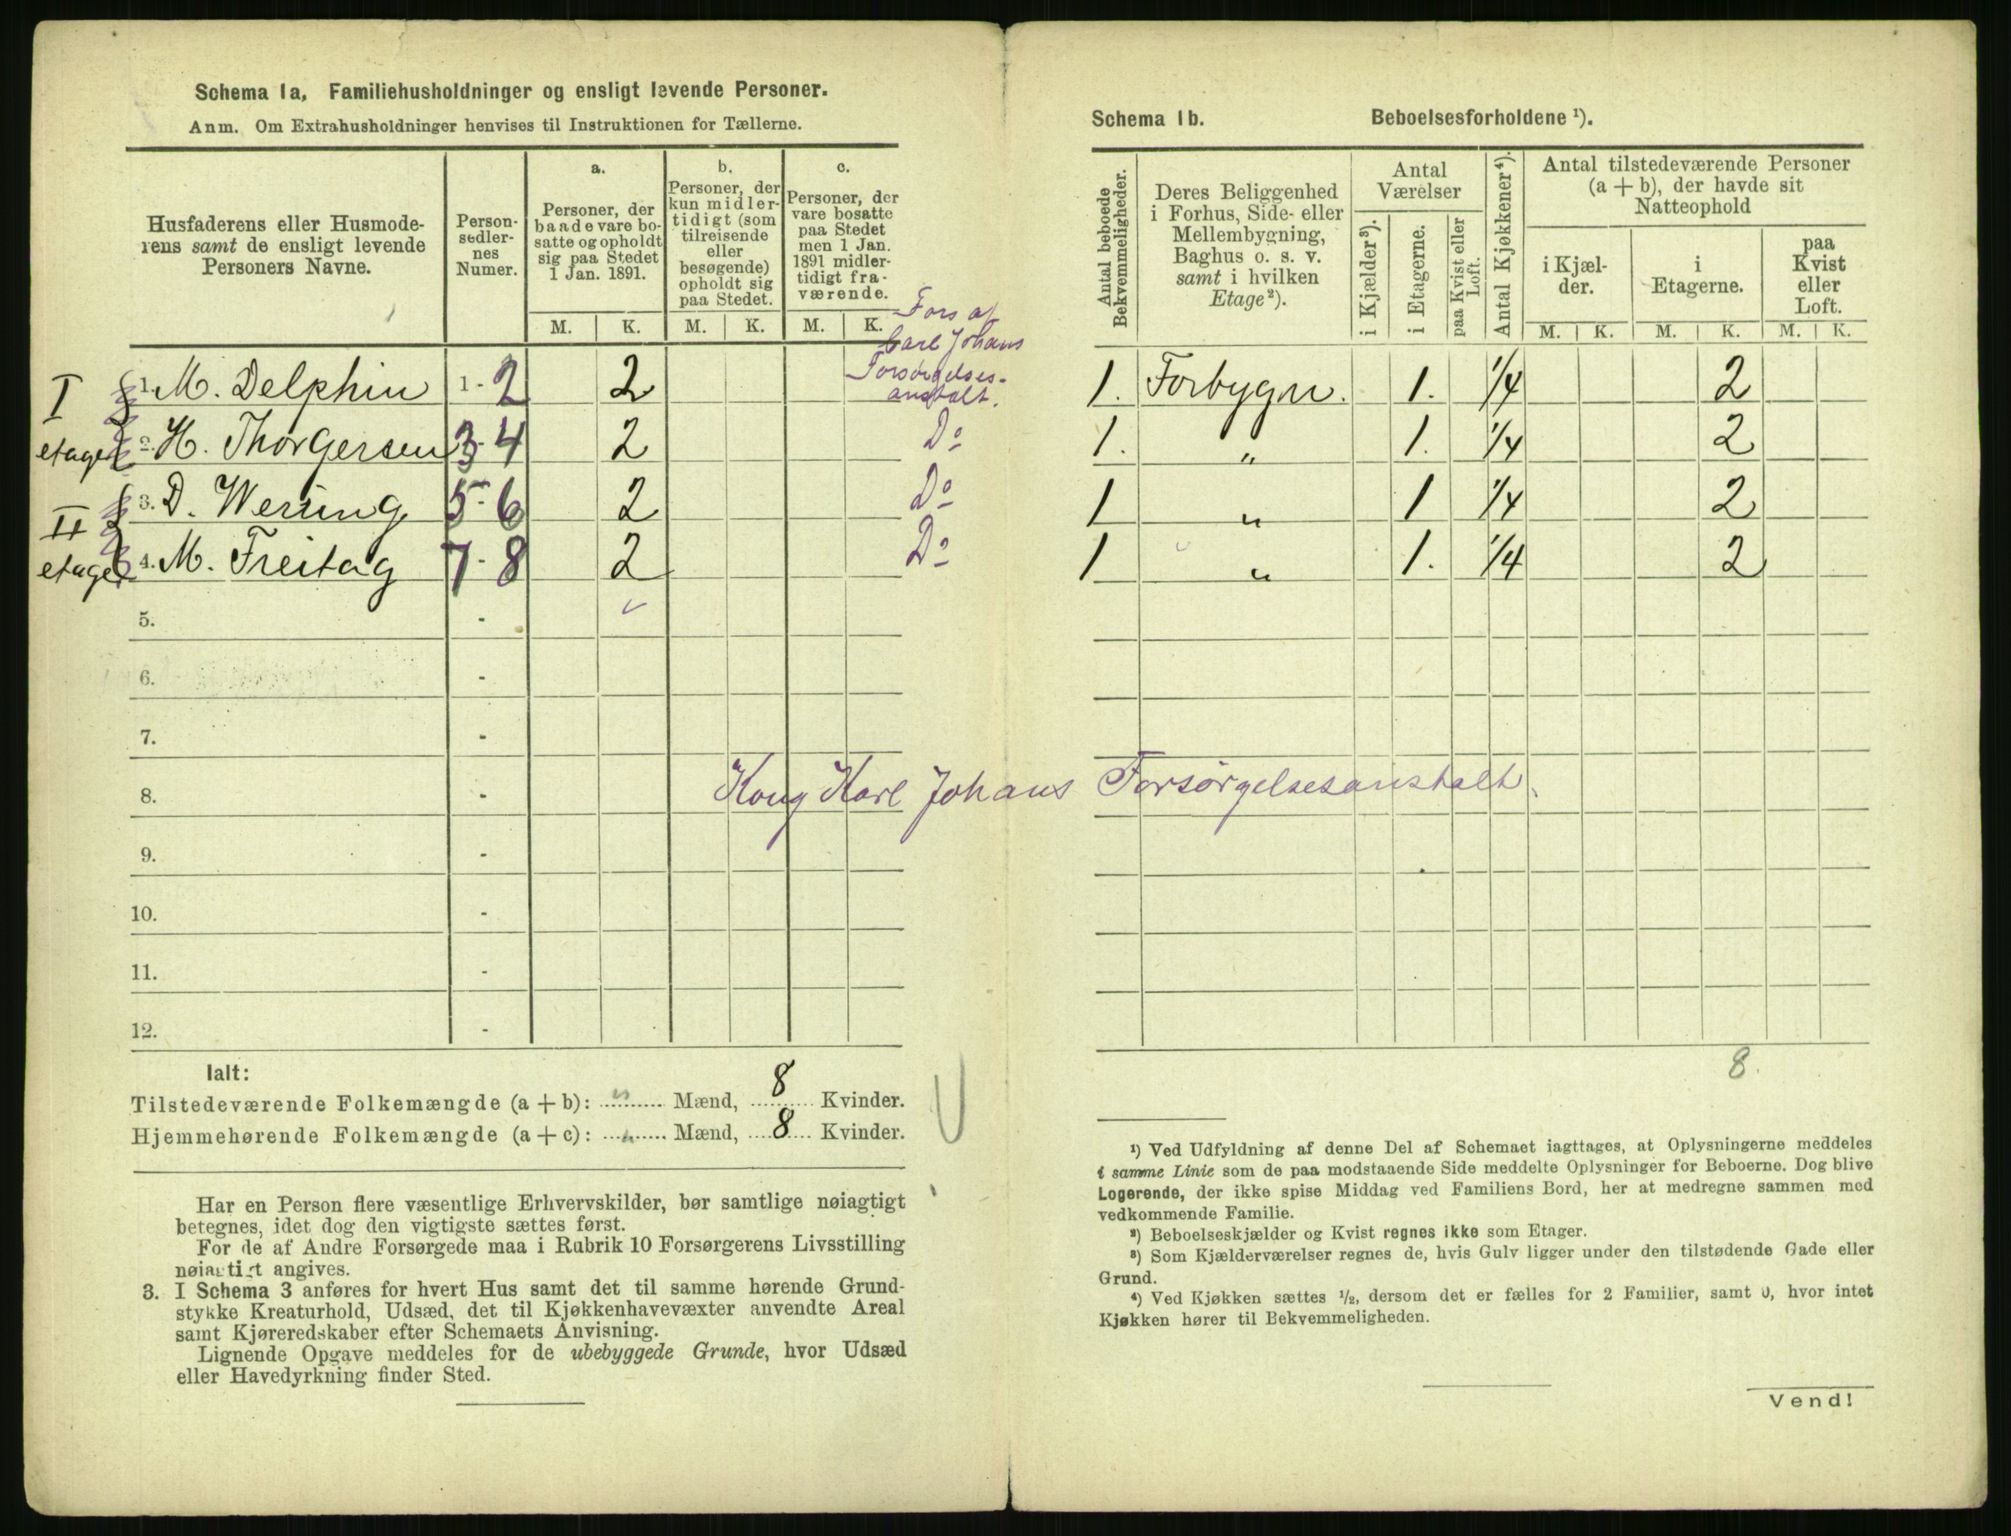 Schema 1a, Familiehusholdninger og ensligt levende Personer.
Anm. Om Extrahusholdninger henvises til Instruktionen for Tællerne.
Husfaderens eller Husmode-
rens samt de ensligt levende
Personers Navne.
Person-
sedler-
nes
Numer.
a.
Personer, der
baade vare bo-
satte og opholdt
sig paa Stedet
1 Jan. 1891.
b.
Personer, der
kun midler-
tidigt (som
tilreisende
eller
besøgende)
opholdt sig
paa Stedet.
c.
Personer, der
vare bosatte
paa Stedet
men 1 Jan.
1891 midler-
tidigt fra-
værende.
M. K. M. K. M. K.
Fors af
Carl Johans
Forsørgelses-
anstalt.
I
etage
1. M. Delphin 1 - 2 2
2. H. Thorgersen 3 - 4 2 Do
II
etage
3. D. Wesing 5 - 6 2 Do
4. M. Freitag 7 - 8 2 Do
5. -
6. -
7. -
8. -
9. -
10. -
11. -
12. -
Kong Karl Johans Forsørgelsesanstalt.
Ialt:
Tilstedeværende Folkemængde (a + b): " Mænd, 8 Kvinder.
Hjemmehørende Folkemængde (a + c): " Mænd, 8 Kvinder.
Har en Person flere væsentlige Erhvervskilder, bør samtlige nøiagtigt
betegnes, idet dog den vigtigste sættes først.
For de af Andre Forsørgede maa i Rubrik 10 Forsørgerens Livsstilling
nøiagtigt angives.
3. I Schema 3 anføres for hvert Hus samt det til samme hørende Grund-
stykke Kreaturhold, Udsæd, det til Kjøkkenhavevæxter anvendte Areal
samt Kjøreredskaber efter Schemaets Anvisning.
Lignende Opgave meddeles for de ubebyggede Grunde, hvor Udsæd
eller Havedyrkning finder Sted.
Schema 1b. Beboelsesforholdene ¹).
Antal beboede
Bekvemmeligheder.
Deres Beliggenhed
i Forhus, Side- eller
Mellembygning,
Baghus o. s. v.
samt i hvilken
Etage ²).
Antal
Værelser
i Kjælder ³).
i Etagerne.
paa Kvist eller
Loft.
Antal Kjøkkener ⁴).
Antal tilstedeværende Personer
(a + b), der havde sit
Natteophold
i Kjæl-
der.
i
Etagerne.
paa
Kvist
eller
Loft.
M. K. M. K. M. K.
1. Forbygn. 1. 1/4 2
1. " 1. 1/4 2
1 " 1 1/4 2
1 " 1. 1/4 2
8.
¹) Ved Udfyldning af denne Del af Schemaet iagttages, at Oplysningerne meddeles
i samme Linie som de paa modstaaende Side meddelte Oplysninger for Beboerne. Dog blive
Logerende, der ikke spise Middag ved Familiens Bord, her at medregne sammen med
vedkommende Familie.
²) Beboelseskjælder og Kvist regnes ikke som Etager.
³) Som Kjælderværelser regnes de, hvis Gulv ligger under den tilstødende Gade eller
Grund.
⁴) Ved Kjøkken sættes ½, dersom det er fælles for 2 Familier, samt 0, hvor intet
Kjøkken hører til Bekvemmeligheden.
Vend!